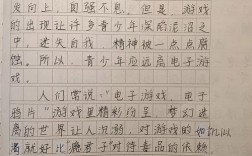 奋向上,自强不息。但是,游戏
的出现让许多青少年深陷泥沼之
中,迷失自我,精神被一点点腐
蚀。所以,青少年应远离电子游
戏。
人们常说"电子游戏,电子
鸦片"游戏里精彩所呈,梦幻迷
离的世界让人沉溺,对游戏的
渴就好比"瘾君子"对待毒品的依赖